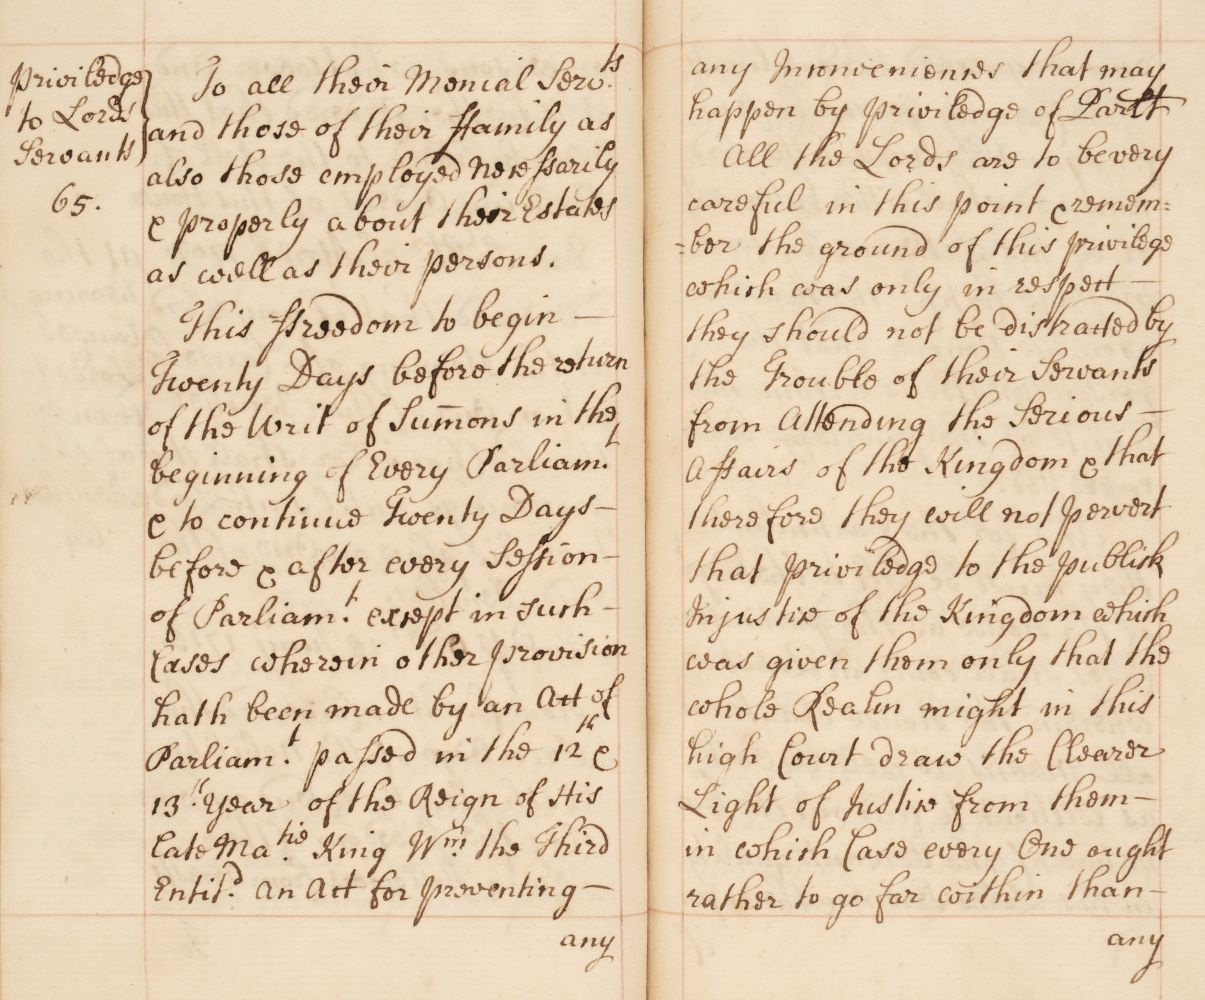 Priviledge
to Lords
Servants
65.
To all their Menial Serv.ts
and those of their ffamily as
also those employed Necessarily
& properly about their Estates
as well as their persons.
This ffreedom to begin —
Twenty Days before the return
of the Writ of Sum̄ons in the
beginning of Every Parliam.t
& to continue Twenty Days —
before & after every Session —
of Parliam.t except in such —
Cases wherein other provision
hath been made by an Act of
Parliam.t passed in the 12th &
13th Year of the Reign of His
Late Ma.tie King Wm. the Third
Entit.d An Act for preventing —
any
any Inconveniences that may
happen by priviledge of Parlt
All the Lords are to be very
careful in this point & remem=
=ber the ground of this privilege
which was only in respect —
they should not be distracted by
the Trouble of their Servants
from Attending the Serious —
Affairs of the Kingdom & that
therefore they will not pervert
that priviledge to the publick
Injustice of the Kingdom which
was given them only that the
whole Realm might in this
high Court draw the Clearer
Light of Justice from them —
in which Case every One ought
rather to go far within than —
any